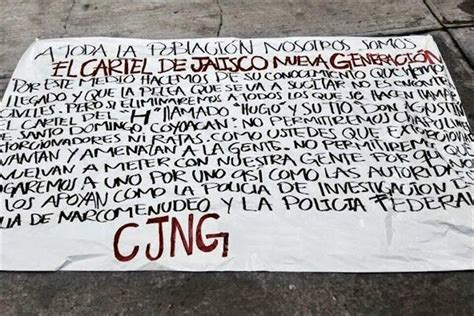 A TODA LA POBLACIÓN NOSOTROS SOMOS
EL CARTEL DE JALISCO NUEVA GENERACIÓN
POR ESTE MEDIO HACEMOS DE SU CONOCIMIENTO QUE HEMOS
LLEGADO Y QUE LA PELEA QUE SE VA A SUCITAR NO ES CONTRA
CIVILES PERO SI ELIMINAREMOS A TODOS LOS QUE SE HACEN LLAMAR
EL CARTEL DEL "H" LLAMADO "HUGO" Y SU TIO DON AGUSTIN
SANTO DOMINGO, COYOACAN: NO PERMITIREMOS CHAPULINES
EXTORCIONADORES NI RATAS COMO USTEDES QUE EXTORCIONAN
LEVANTAN Y AMENATAN A LA GENTE. NO PERMITIREMOS QUE
VUELVAN A METER CON NUESTRA GENTE POR
UNO POR UNO ASI COMO LAS AUTORIDADES
LOS APOYAN COMO LA POLICIA DE INVESTIGACION
DE NARCOMENUDEO Y LA POLICIA FEDERAL
CJNG